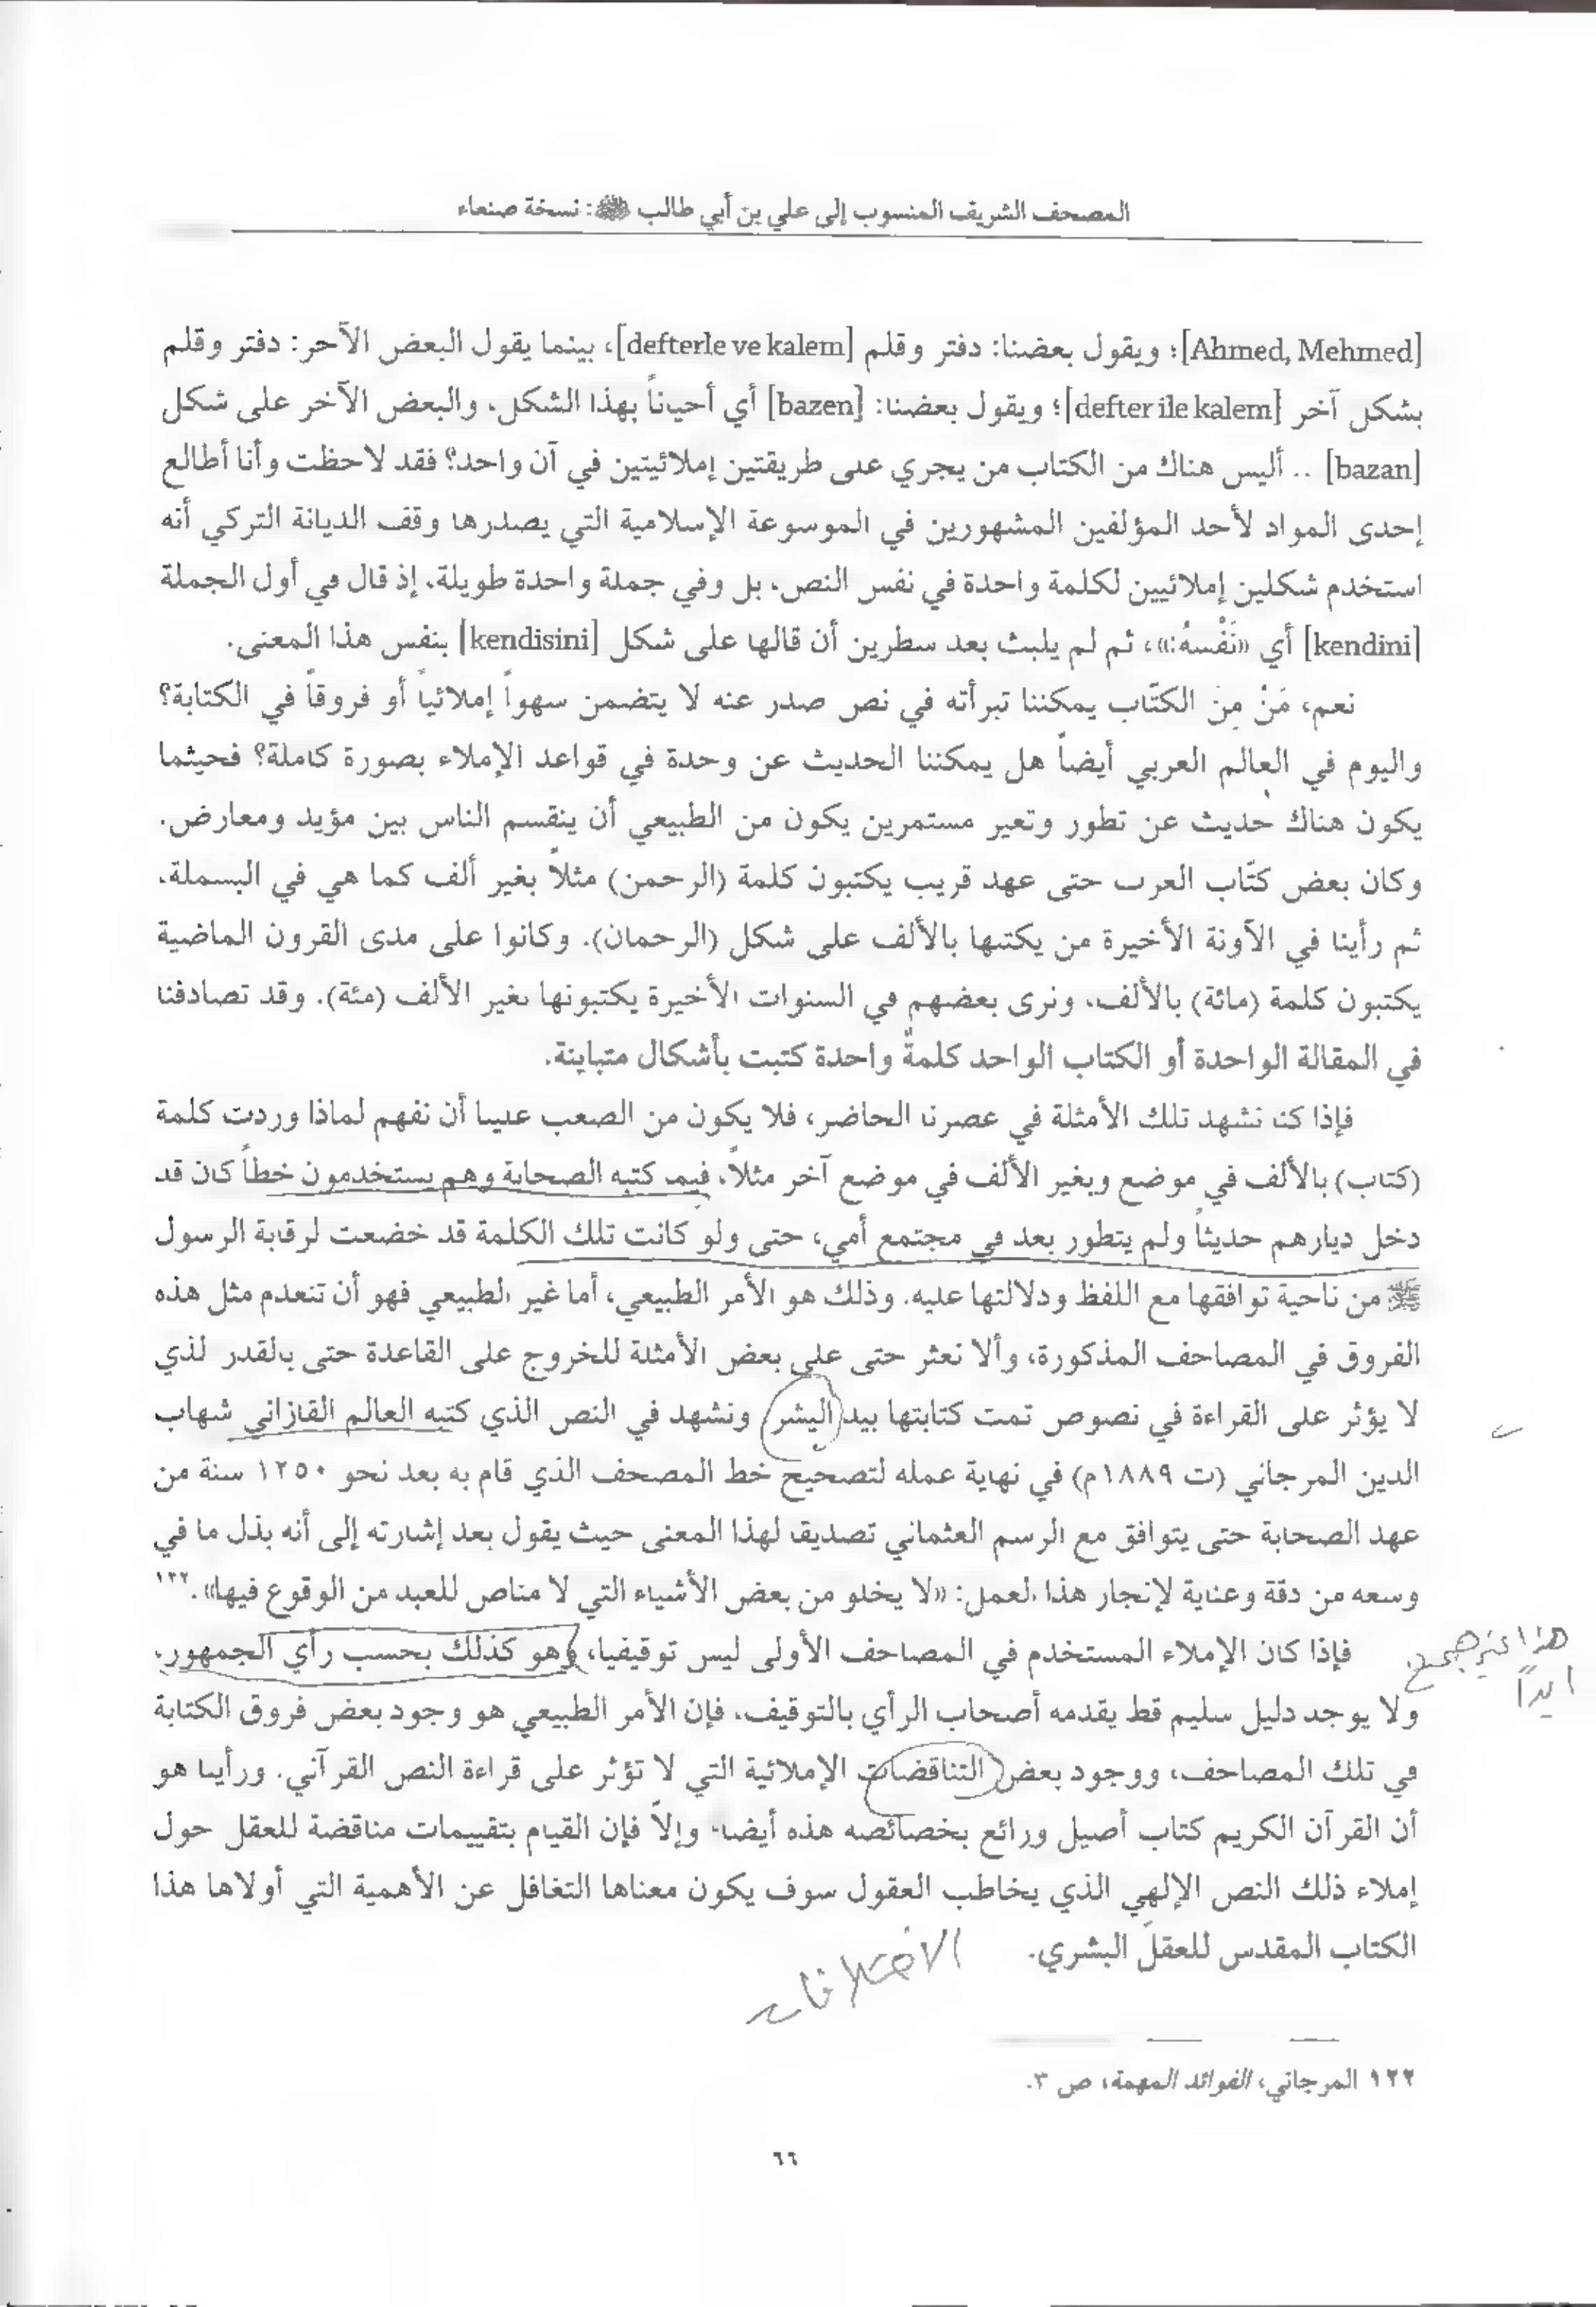 المصحف الشريف المنسوب إلى علي بن أبي طالب ﷺ: نسخة صنعاء
[Ahmed, Mehmed]؛ ويقول بعضنا: دفتر وقلم [defterle ve kalem]، بينما يقول البعض الآحر: دفتر وقلم
بشكل آخر [defter ile kalem]؛ ويقول بعضنا: [bazen] أي أحيناً بهذا الشكل، والبعض الآخر على شكل
[bazan] .. أليس هناك من الكتاب من يجري على طريقتين إملائيتين في آن واحد؟ فقد لاحظت وأنا أطالع
إحدى المواد لأحد المؤلفين المشهورين في الموسوعة الإسلامية التي يصدرها وقف الديانة التركي أنه
استخدم شكلين إملائيين لكلمة واحدة في نفس النص، بل وفي جملة واحدة طويلة، إذ قال في أول الجملة
[kendini] أي «نَفْسهُ:»، ثم لم يلبث بعد سطرين أن قالها على شكل [kendisini] بنفس هذا المعنى.
نعم، مَنْ مِنَ الكتّاب يمكننا تبرأته في نص صدر عنه لا يتضمن سهواً إملائياً أو فروقاً في الكتابة؟
واليوم في العالم العربي أيضاً هل يمكننا الحديث عن وحدة في قواعد الإملاء بصورة كاملة؟ فحيثما
يكون هناك حديث عن تطور وتعير مستمرين يكون من الطبيعي أن ينقسم الناس بين مؤيد ومعارض.
وكان بعض كتّاب العرب حتى عهد قريب يكتبون كلمة (الرحمن) مثلاً بغير ألف كما هي في البسملة،
ثم رأينا في الآونة الأخيرة من يكتبها بالألف على شكل (الرحمان). وكانوا على مدى القرون الماضية
يكتبون كلمة (مائة) بالألف، ونرى بعضهم في السنوات الأخيرة يكتبونها بغير الألف (مئة). وقد تصادفنا
في المقالة الواحدة أو الكتاب الواحد كلمةٌ واحدة كتبت بأشكال متباينة.
فإذا كنا نشهد تلك الأمثلة في عصرنا الحاضر، فلا يكون من الصعب علينا أن نفهم لماذا وردت كلمة
(كتاب) بالألف في موضع وبغير الألف في موضع آخر مثلاً، فيما كتبه الصحابة وهم يستخدمون خطاً كان قد
دخل ديارهم حديثاً ولم يتطور بعد في مجتمع أمي، حتى ولو كانت تلك الكلمة قد خضعت لرقابة الرسول
ﷺ من ناحية توافقها مع اللفظ ودلالتها عليه. وذلك هو الأمر الطبيعي، أما غير الطبيعي فهو أن تنعدم مثل هذه
الفروق في المصاحف المذكورة، وألا نعثر حتى على بعض الأمثلة للخروج على القاعدة حتى بالقدر الذي
لا يؤثر على القراءة في نصوص تمت كتابتها بيد البشر. ونشهد في النص الذي كتبه العالم القازاني شهاب
الدين المرجاني (ت ١٨٨٩م) في نهاية عمله لتصحيح خط المصحف الذي قام به بعد نحو ١٢٥٠ سنة من
عهد الصحابة حتى يتوافق مع الرسم العثماني تصديقا لهذا المعنى حيث يقول بعد إشارته إلى أنه بذل ما في
وسعه من دقة وعناية لإنجاز هذا العمل: «لا يخلو من بعض الأشياء التي لا مناص للعبد من الوقوع فيها».١٢٢
فإذا كان الإملاء المستخدم في المصاحف الأولى ليس توقيفيا، وهو كذلك بحسب رأي الجمهور،
هذا غير صحيح
أبداً
ولا يوجد دليل سليم قط يقدمه أصحاب الرأي بالتوقيف، فإن الأمر الطبيعي هو وجود بعض فروق الكتابة
في تلك المصاحف، ووجود بعض التناقضات الإملائية التي لا تؤثر على قراءة النص القرآني. ورأينا هو
أن القرآن الكريم كتاب أصيل ورائع بخصائصه هذه أيضا، وإلاّ فإن القيام بتقييمات مناقضة للعقل حول
إملاء ذلك النص الإلهي الذي يخاطب العقول سوف يكون معناها التغافل عن الأهمية التي أولاها هذا
الكتاب المقدس للعقل البشري.
الاختلافات
١٢٢ المرجاني، الفوائد المهمة، ص ٣.
٦٦